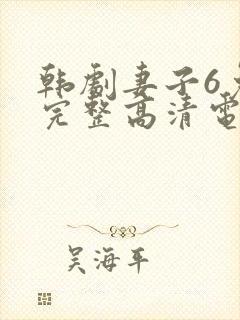 韩劇妻子6
完整高清電
吴海平